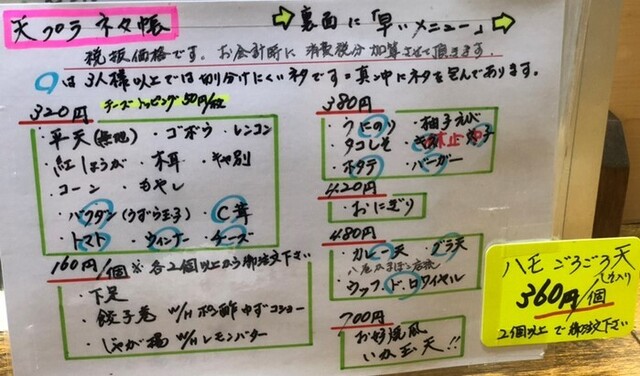 天プラ ネタ帳
⇨ 裏面に「早いメニュー」⇨
税抜価格です。お会計時に消費税分加算させて頂きます。
○は3人様以上では切り分けにくいネタです=真ン中にネタを包んであります。
320円 チーズトッピング50円/ヶ
・平天(無地) ・ゴボウ ・レンコン
・紅しょうが ・木耳 ・キャ別
・コーン ・もやし
・バクダン(うずら玉子) ・C茸
・トマト ・ウィンナー ・チーズ
160円/個 ※各2個以上から御注文下さい
・下足
・餃子巻 W/H ポン酢ゆずコショー
・じゃが揚 W/H レモンバター
380円
・うにのり ・柚子えび
・タコしそ
・ホタテ ・バーガー
420円
・おにぎり
480円
・カレー天 ・グラ天
・ウフ・ド・ロワイヤル
700円
お好焼風
いか玉天!!
ハモごろごろ天
360円/個
2個以上で御注文下さい